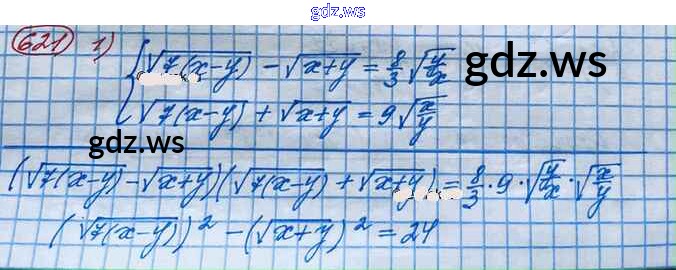 gdz.ws
621) 1) { √(7(x-y)) - √(x+y) = 8/3 √(y/x) gdz.ws
√(7(x-y)) + √(x+y) = 9√(x/y)
gdz.ws
(√(7(x-y)) - √(x+y))(√(7(x-y)) + √(x+y)) = 8/3 · 9 · √(y/x) · √(x/y)
(√(7(x-y)))² - (√(x+y))² = 24